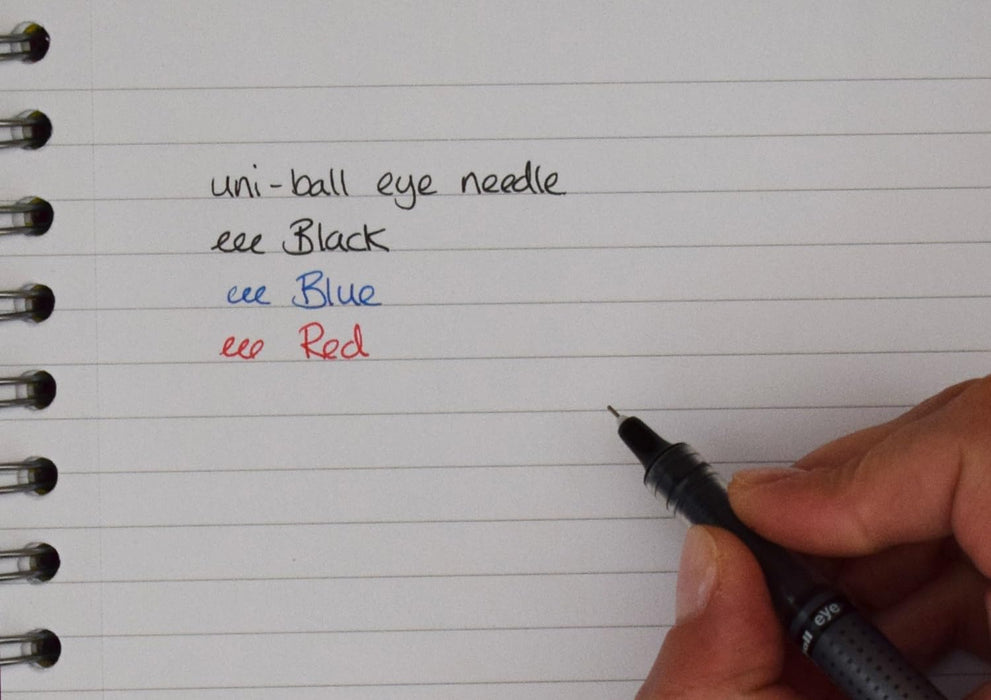 uni-ball eye needle
eee Black
eee Blue
eee Red
eye